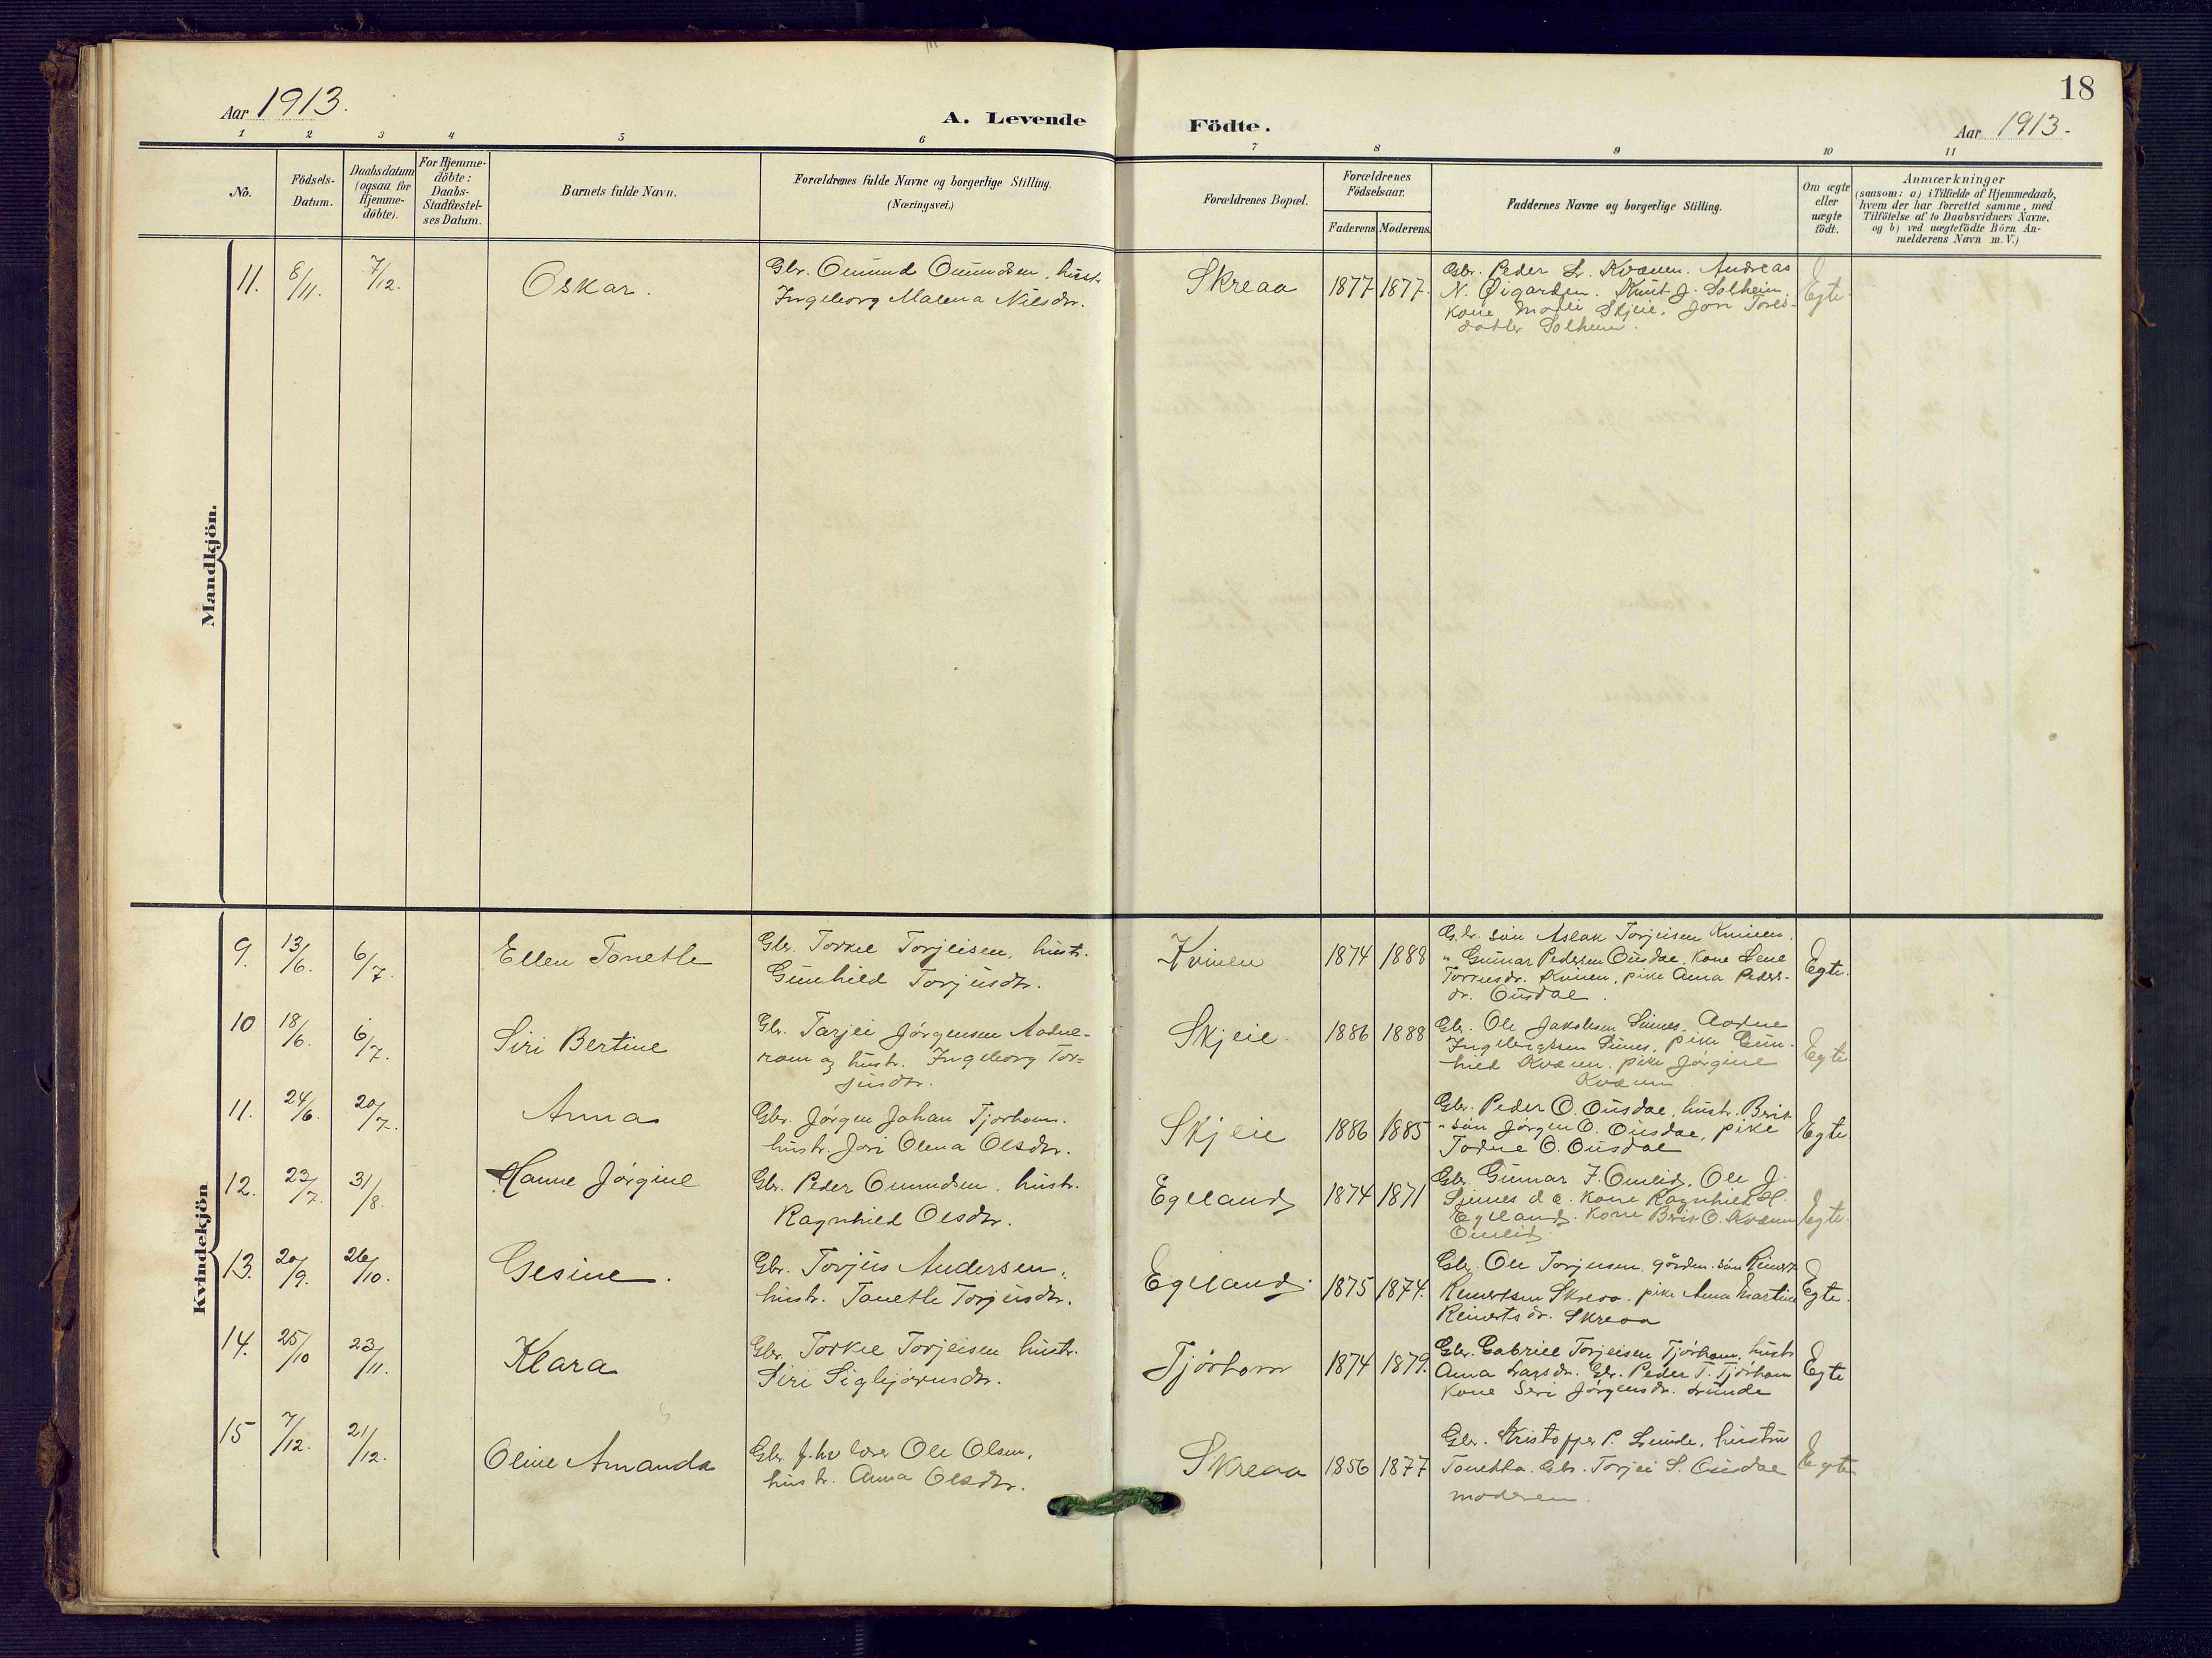 18
Aar 1913.
A. Levende
Födte.
Aar 1913.
1 2 3 4 5 6 7 8 9 10 11
No.
Födsels-
Datum.
Daabsdatum
(ogsaa for
Hjemme-
döbte).
For Hjemme-
döbte:
Daabs-
Stadfæstel-
ses Datum.
Barnets fulde Navn.
Forældrenes fulde Navne og borgerlige Stilling.
(Næringsvei.)
Forældrenes Bopæl.
Forældrenes
Födselsaar.
Faderens Moderens.
Faddernes Navne og borgerlige Stilling.
Om ægte
eller
uægte
födt.
Anmærkninger
(saasom: a) i Tilfælde af Hjemmedaab,
hvem der har forrettet samme, med
Tilföielse af to Daabsvidners Navne.
og b) ved uægtefödte Börn An-
melderens Navn m. V.)
Mandkjön.
11. 8/11. 7/12. Oskar.
Gbr. Omund Omundsen, hustr.
Ingeborg Malena Nilsdtr.
Skreaa 1877 1877.
Gbr. Peder Kvænen. Andreas
N. Øigarden. Knut J. Solheim,
Kone Skjeie. Jori Tores-
datter Solheim.
Egte
Kvindekjön
9. 13/6. 6/7. Ellen Tonette
Gbr. Torkel Torjeisen, hustr.
Gunhild Torjusdtr.
Kvinen 1874 1888
Gbr. søn Aslak Torjeisen Kvinen,
" Gunnar Pedersen Ousdal, Kone Lene
Kvinen, pike Anna Peders-
dr. Ousdal.
Egte.
10 18/6. 6/7. Siri Bertine
Gbr. Tarjei Jørgensen Aadne-
ram og hustr. Ingeborg Tor-
jusdtr.
Skjeie 1886 1888
Gbr. Ole Jakobsen Sinnes, Aadne
Ingebrigtsen Sinnes, pike Gun-
hild Kvænen. pike Jørgine
Kvænen
Egte
11. 24/6. 20/7. Anna
Gbr. Jørgen Johan Tjørhom.
hustr. Jori Olena Olsdtr.
Skjeie 1886 1885
Gbr. Peder O. Ousdal, hustr. Brit
" søn Jørgen O. Ousdal, pike
Todne O. Ousdal
Egte
12. 23/7. 31/8. Hanne Jørgine
Gbr. Peder Omundsen, hustr.
Ragnhild Olsdtr.
Egeland 1874 1871
Gbr. Gunnar F. Omlid, Ole J.
Sinnes d. e. Kone Ragnhild H.
Egeland. Kone Brit O. Kvænen
Omlid
Egte.
13. 20/9. 26/10. Gesine.
Gbr. Torjus Andersen,
hustr. Tonette Torjusdtr.
Egeland. 1875 1874.
Gbr. Ole Torjusen, gården. søn Reinert
Reinertsen Skreaa. pike Anna Martine
Reinertsdr. Skreaa
Egte.
14. 25/10 23/11. Klara
Gbr. Torkel Torjeisen hustr.
Siri Sigbjørnsdtr.
Tjørhom 1874 1879.
Gbr. Gabriel Torjeisen Tjørhom, hustr
Anna Larsdr. Gbr. Peder T. Tjørhom
Kone Seri Jørgensdr. Lunde
Egte
15 7/12. 21/12. Oline Amanda
Gbr. Ole Olsen,
hustr. Anna Olsdtr.
Skreaa 1856 1877
Gbr. Kristoffer P. Lunde, hustru
Tonetta. Gbr. Torjei S. Ousdal
moderen.
Egte